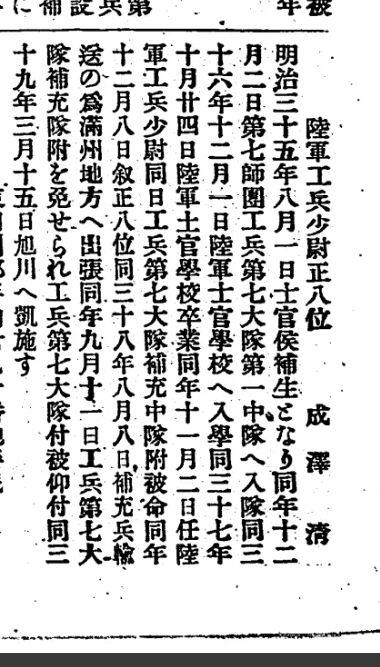 陸軍工兵少尉正八位　成澤清
明治三十五年八月一日士官侯補生となり同年十二
月二日第七師團工兵第七大隊第一中隊へ入隊同三
十六年十二月一日陸軍士官學校へ入學同三十七年
十月廿四日陸軍士官學校卒業同年十一月二日任陸
軍工兵少尉同日工兵第七大隊補充中隊附被命同年
十二月八日叙正八位同三十八年八月八日補充兵輸
送の爲滿州地方へ出張同年九月十一日工兵第七大
隊補充隊附を免せられ工兵第七大隊付被仰付同三
十九年三月十五日旭川へ凱施す